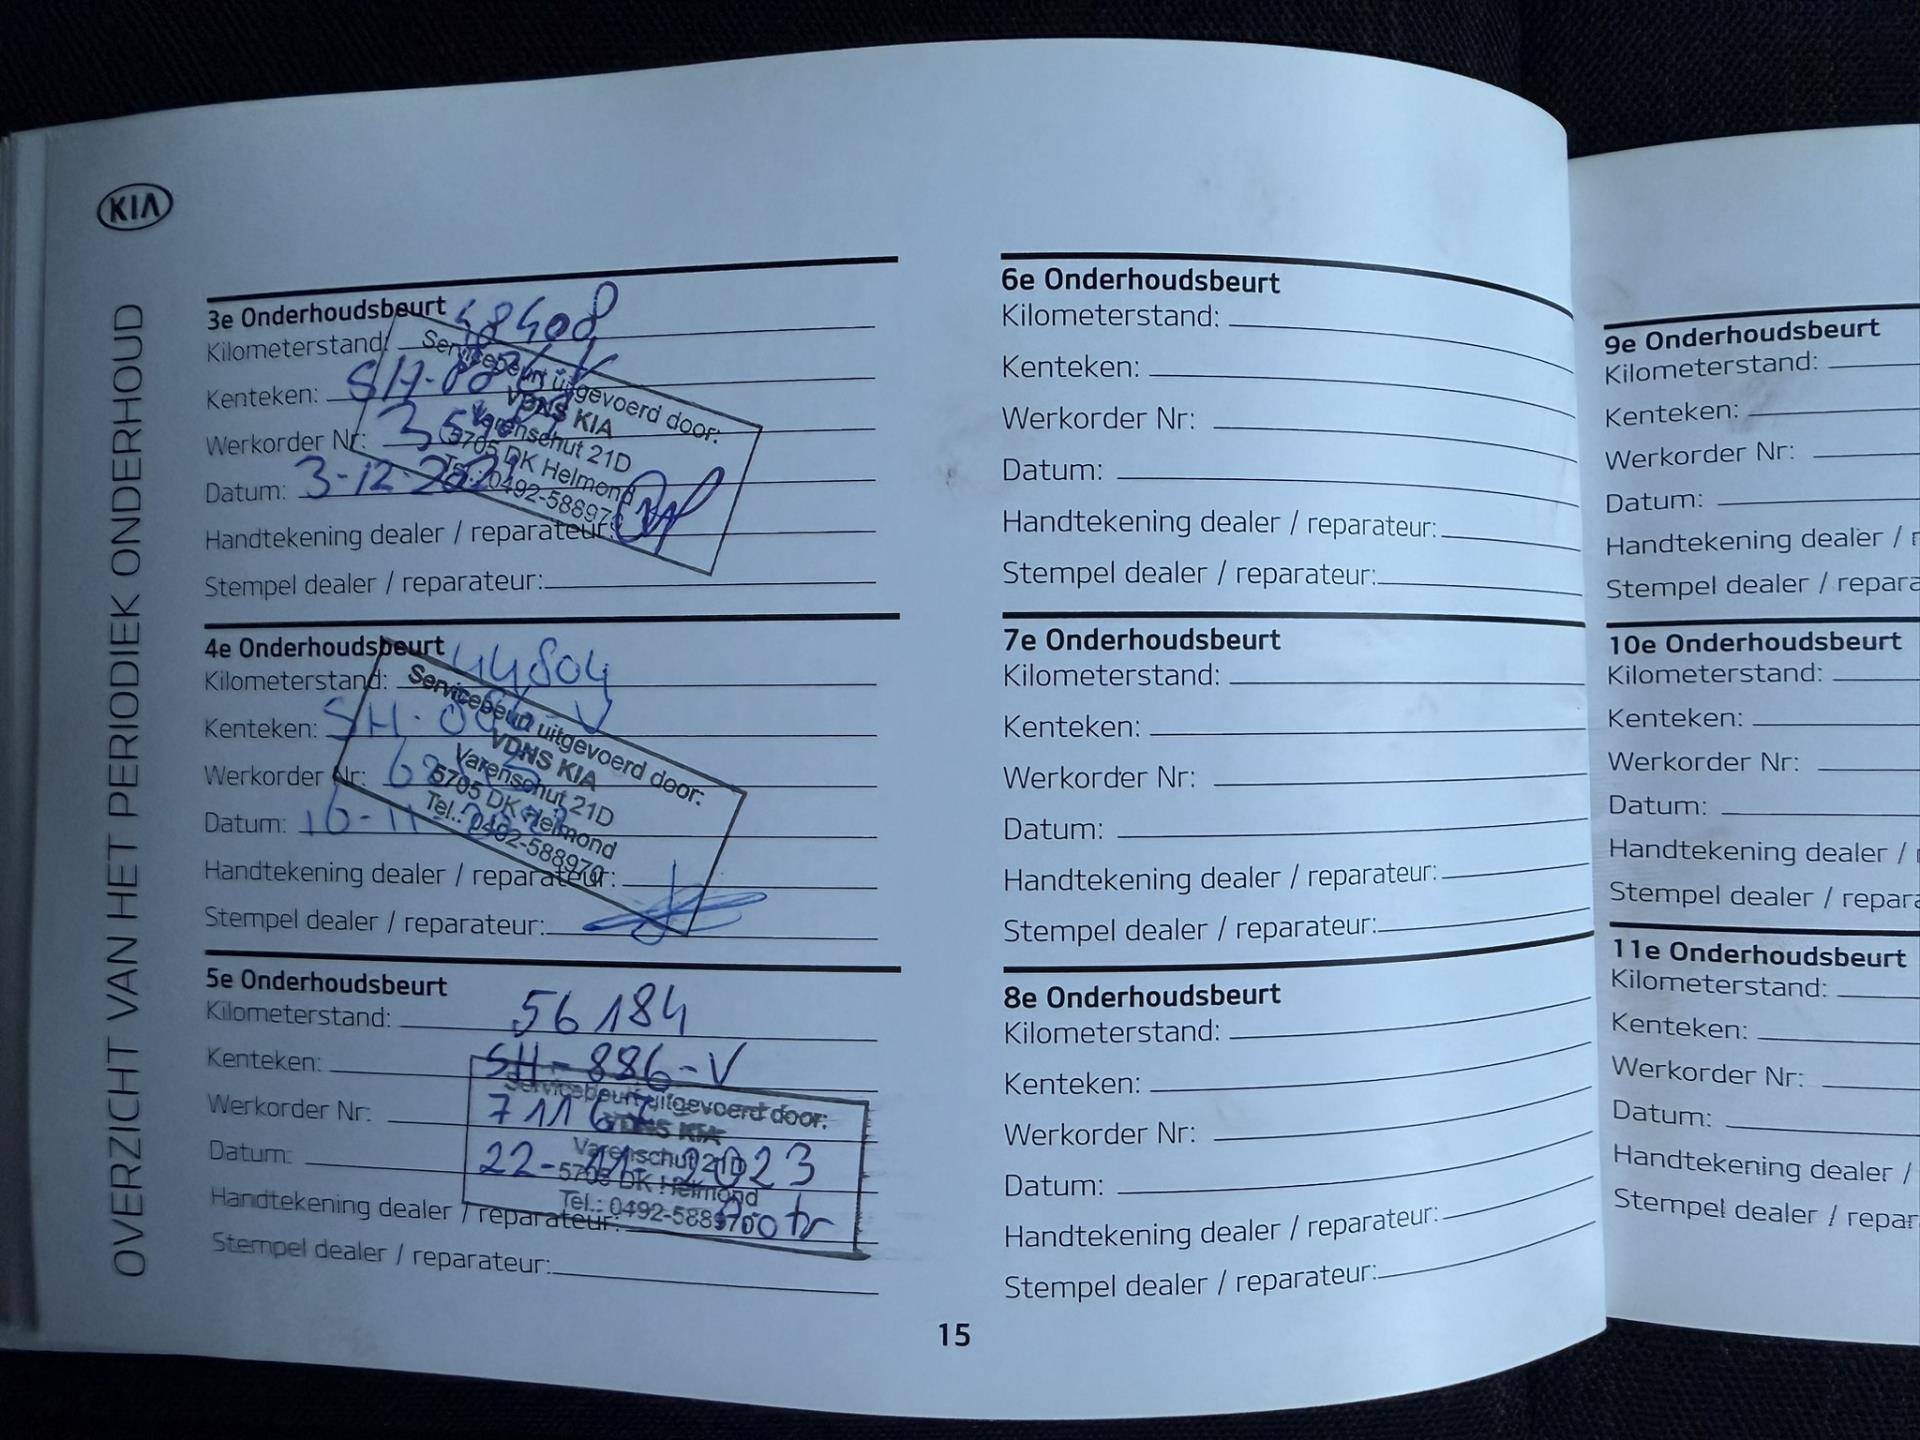 KIA
OVERZICHT VAN HET PERIODIEK ONDERHOUD
3e Onderhoudsbeurt
Kilometerstand:
Kenteken:
Werkorder Nr:
Datum: 3-12-2021
Handtekening dealer / reparateur:
Stempel dealer / reparateur:
Servicebeurt uitgevoerd door:
VDNS KIA
Varenschut 21D
5705 DK Helmond
Tel.: 0492-588970
4e Onderhoudsbeurt
Kilometerstand: 44804
Kenteken:
Werkorder Nr:
Datum:
Handtekening dealer / reparateur:
Stempel dealer / reparateur:
Servicebeurt uitgevoerd door:
VDNS KIA
Varenschut 21D
5705 DK Helmond
Tel.: 0492-588970
5e Onderhoudsbeurt
Kilometerstand: 56184
Kenteken: SH-886-V
Werkorder Nr:
Datum: 22-11-2023
Handtekening dealer / reparateur:
Stempel dealer / reparateur:
Servicebeurt uitgevoerd door:
VDNS KIA
Varenschut 21D
5705 DK Helmond
Tel.: 0492-588970
6e Onderhoudsbeurt
Kilometerstand:
Kenteken:
Werkorder Nr:
Datum:
Handtekening dealer / reparateur:
Stempel dealer / reparateur:
7e Onderhoudsbeurt
Kilometerstand:
Kenteken:
Werkorder Nr:
Datum:
Handtekening dealer / reparateur:
Stempel dealer / reparateur:
8e Onderhoudsbeurt
Kilometerstand:
Kenteken:
Werkorder Nr:
Datum:
Handtekening dealer / reparateur:
Stempel dealer / reparateur:
15
9e Onderhoudsbeurt
Kilometerstand:
Kenteken:
Werkorder Nr:
Datum:
Handtekening dealer / r
Stempel dealer / repara
10e Onderhoudsbeurt
Kilometerstand:
Kenteken:
Werkorder Nr:
Datum:
Handtekening dealer /
Stempel dealer / repara
11e Onderhoudsbeurt
Kilometerstand:
Kenteken:
Werkorder Nr:
Datum:
Handtekening dealer /
Stempel dealer / repar